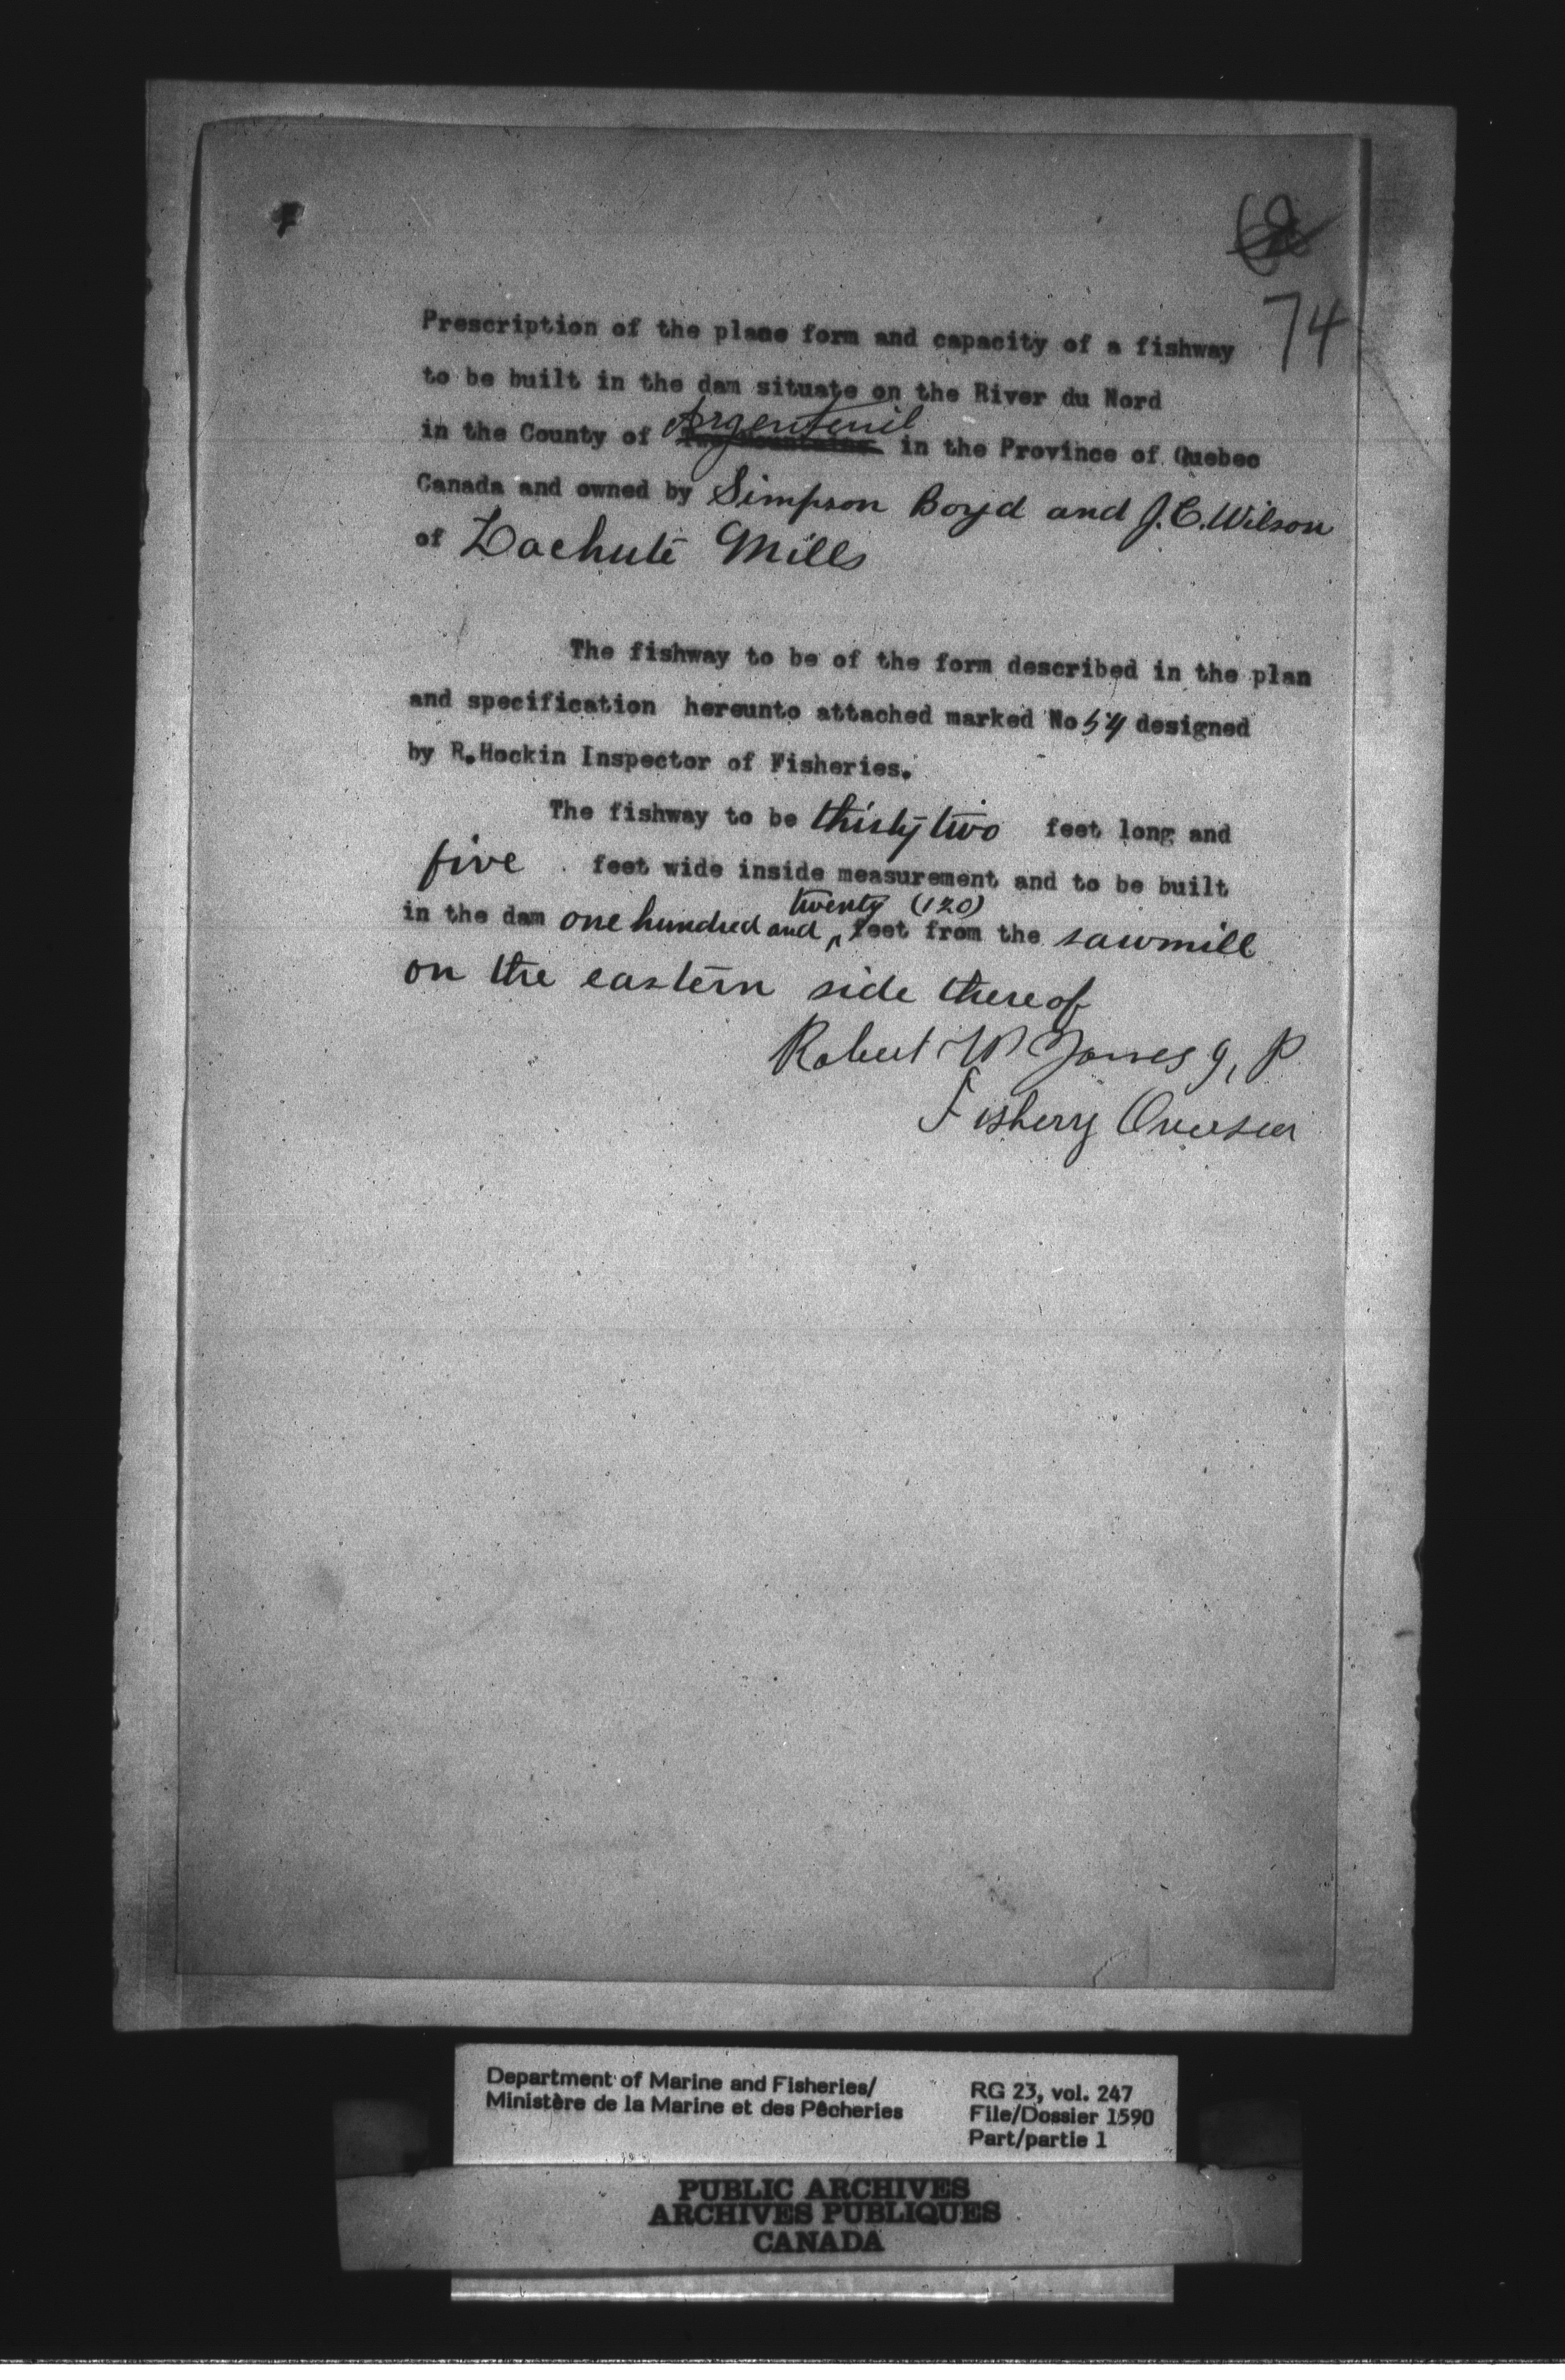 62
74
Prescription of the place form and capacity of a fishway
to be built in the dam situate on the River du Nord
in the County of Argenteuil Two Mountains in the Province of Quebec
Canada and owned by Simpson Boyd and J.C. Wilson
of Lachute Mills
The fishway to be of the form described in the plan
and specification hereunto attached marked No 54 designed
by R.Hockin Inspector of Fisheries.
The fishway to be thirty two feet long and
five feet wide inside measurement and to be built
in the dam one hundred and twenty (120) feet from the sawmill
on the eastern side thereof
Robert W Jones J, P
Fishery Overseer
Department of Marine and Fisheries/
Ministère de la Marine et des Pêcheries
RG 23, vol. 247
File/Dossier 1590
Part/partie 1
PUBLIC ARCHIVES
ARCHIVES PUBLIQUES
CANADA